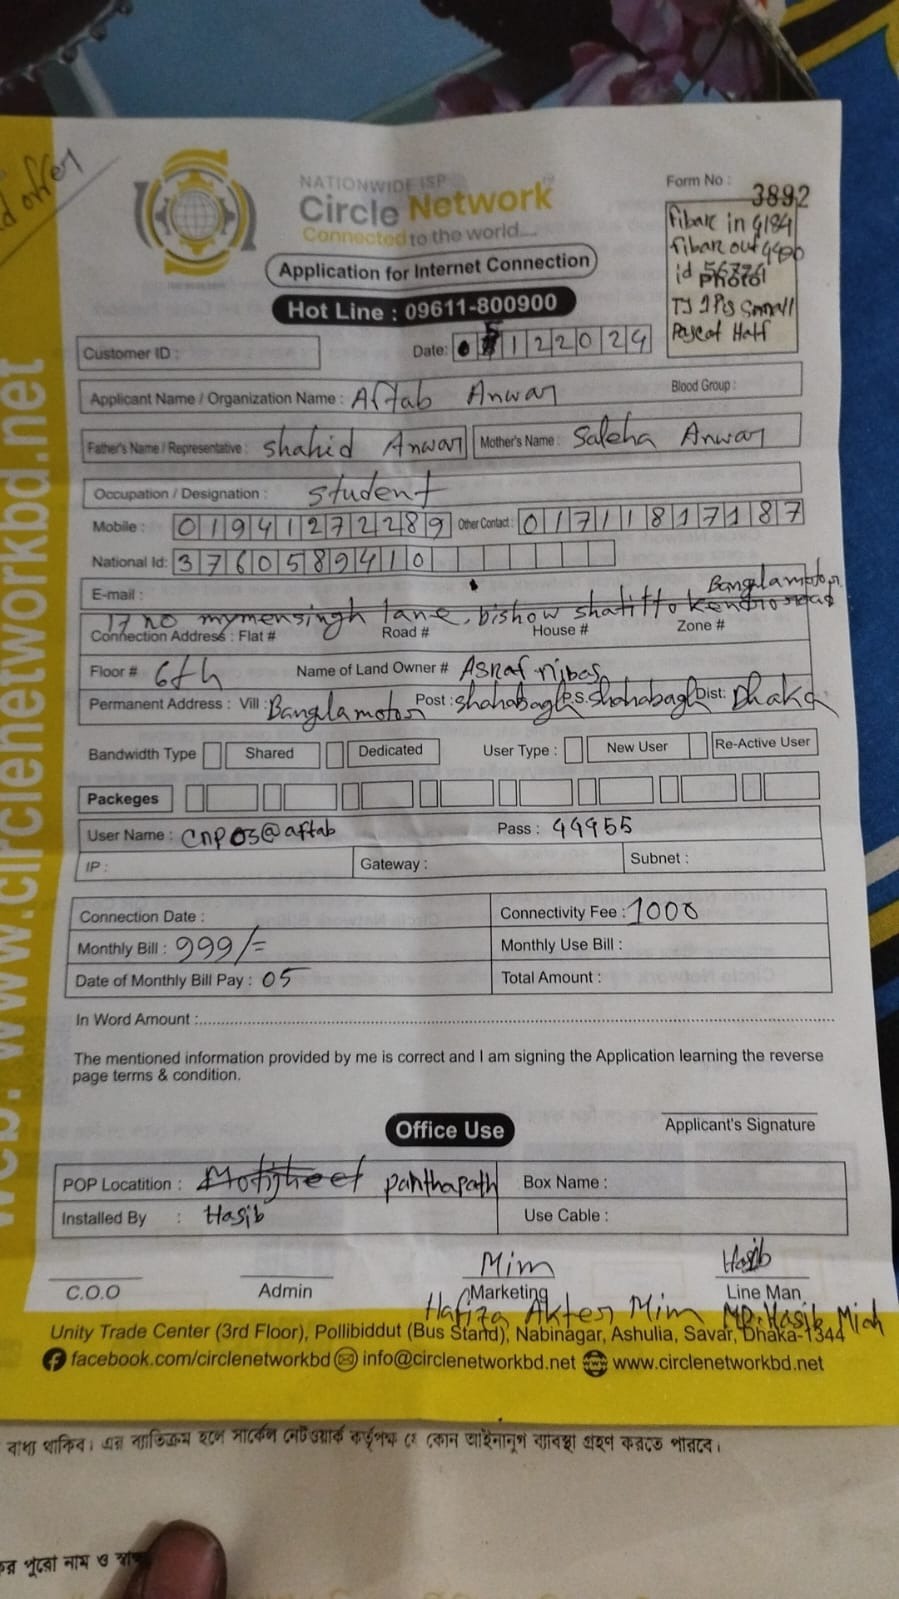 d offer
NATIONWIDE ISP
Circle Network
Connected to the world....
Application for Internet Connection
Hot Line : 09611-800900
Form No : 3892
fibare in 9184
fibar out 9400
id
Photo
TJ 1 Pis Small
Pascot Half
Customer ID :
Date: 5 1 2 2 0 2 4
Applicant Name / Organization Name : Aftab Anwar Blood Group :
Father's Name / Representative : Shahid Anwar Mother's Name : Saleha Anwar
Occupation / Designation : Student
Mobile : 01941272289 Other Contact : 01711817187
National Id: 3760589410
E-mail : Banglamotor
17 no mymensingh lane, bishow shatitto kendro
Connection Address : Flat # Road # House # Zone #
Floor # 6th Name of Land Owner # Asraf nibas
Permanent Address : Vill : Banglamotor Post : Shahabagh P.S. Shahabagh Dist: Dhaka
Bandwidth Type Shared Dedicated User Type : New User Re-Active User
Packeges
User Name : cnp03@aftab Pass : 44955
IP : Gateway : Subnet :
Connection Date : Connectivity Fee : 1000
Monthly Bill : 999/= Monthly Use Bill :
Date of Monthly Bill Pay : 05 Total Amount :
In Word Amount :
The mentioned information provided by me is correct and I am signing the Application learning the reverse
page terms & condition.
Applicant's Signature
Office Use
POP Locatition : Motijheel panthapath Box Name :
Installed By : Hasib Use Cable :
Mim Hasib
C.O.O Admin Marketing Line Man
Hafiza Akter Mim MD. Hasib Miah
Unity Trade Center (3rd Floor), Pollibiddut (Bus Stand), Nabinagar, Ashulia, Savar, Dhaka-1344
facebook.com/circlenetworkbd info@circlenetworkbd.net www.circlenetworkbd.net
web: www.circlenetworkbd.net
বাধ্য থাকিব। এর ব্যতিক্রম হলে সার্কেল নেটওয়ার্ক কর্তৃপক্ষ যে কোন আইনানুগ ব্যবস্থা গ্রহণ করতে পারবে।
পুরো নাম ও